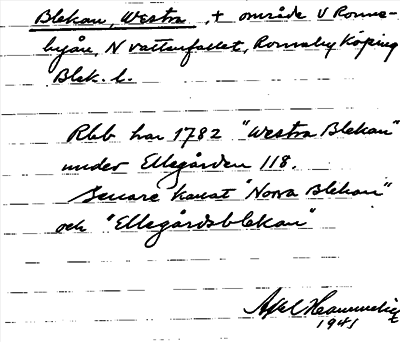 Blekan, Westra, + område V Ronne-
byån, N vattenfallet, Ronneby Köping
Blek. l.
Rbb har 1782 "Westra Blekan"
under Ellegården 118.
Senare kallat "Norra Blekan"
och "Ellegårdsblekan"
Axel
1941